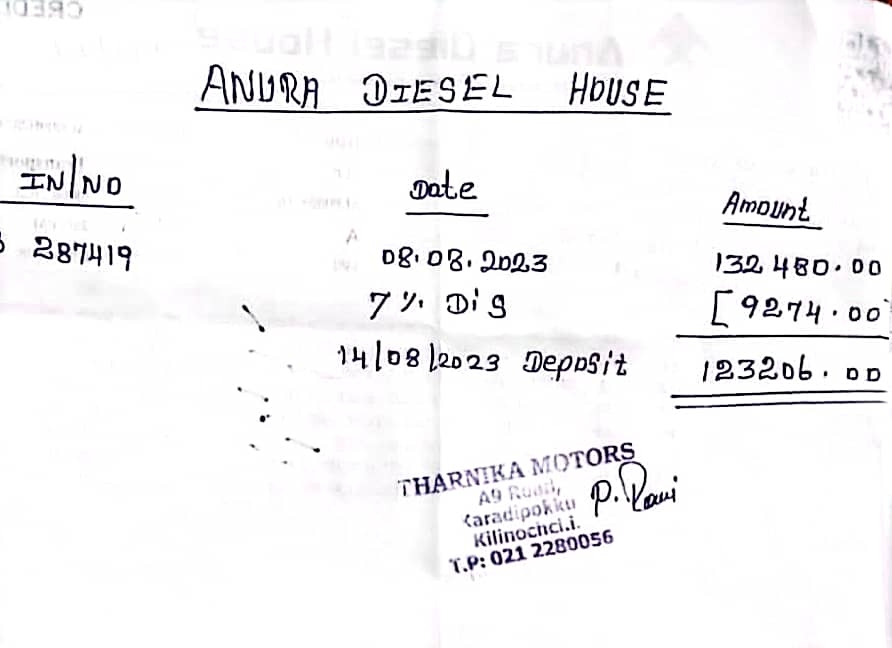 ANURA DIESEL HOUSE
IN/NO Date Amount
287419 08.08.2023 132 480.00
7 %. Dis [9274.00
14/08/2023 Deposit 123206.00
THARNIKA MOTORS
A9 Road,
Karadipokku
Kilinochci.i.
T.P: 021 2280056
P. Ravi